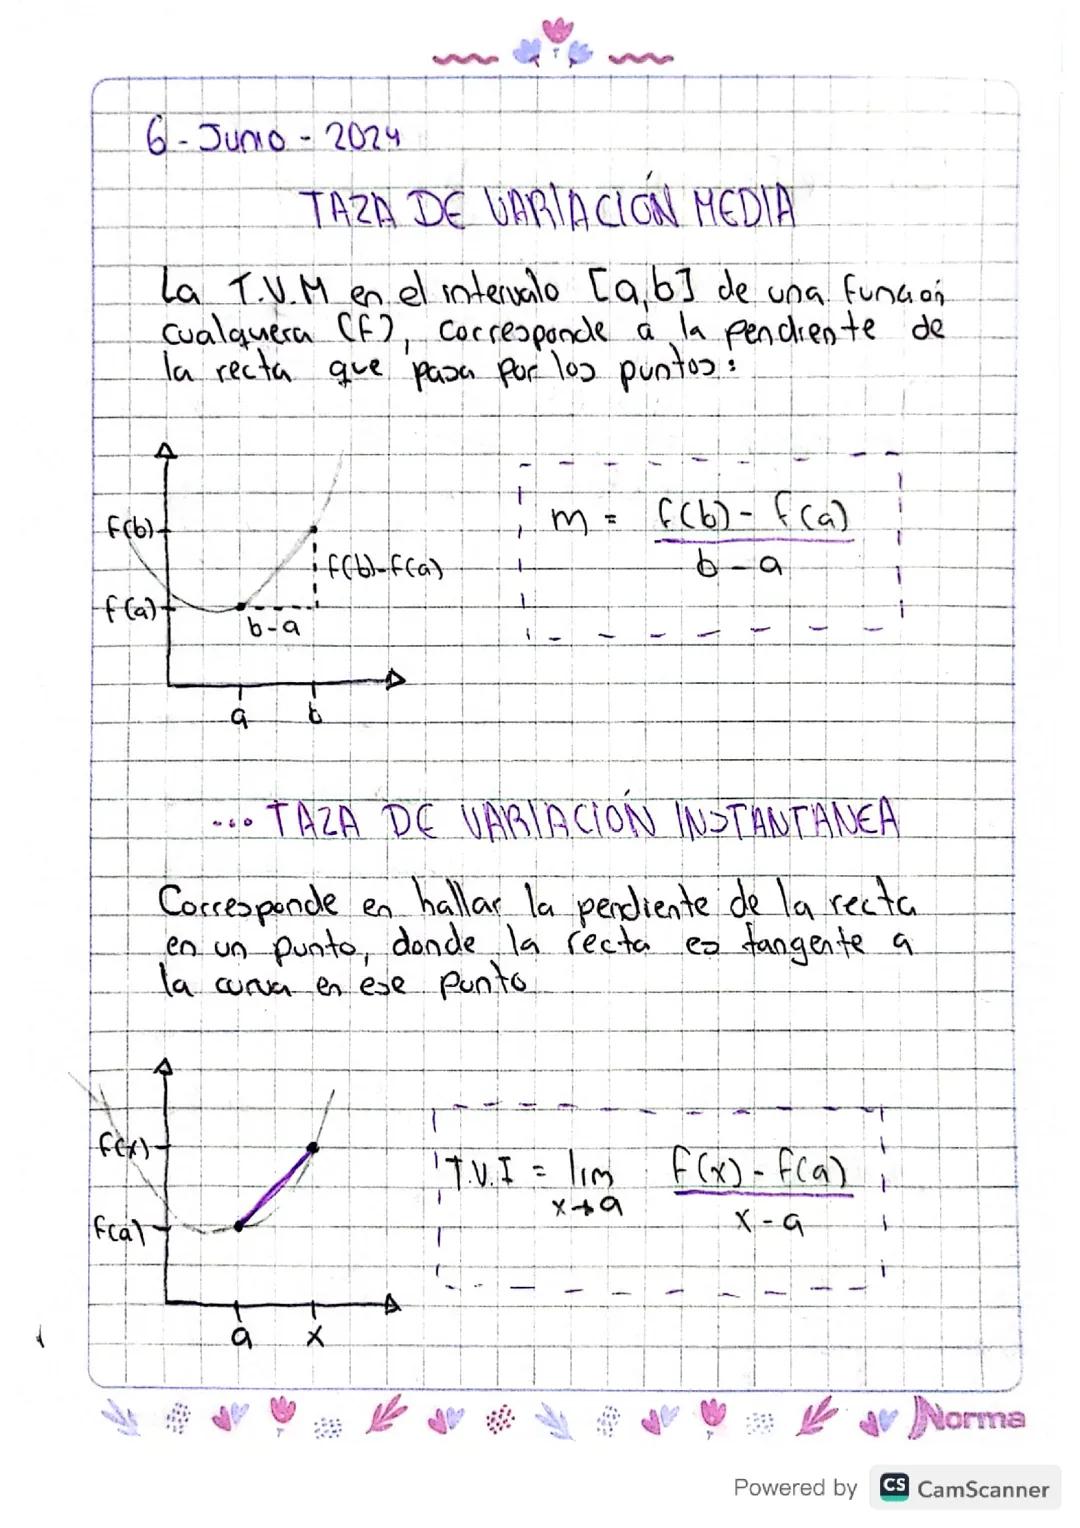 6 - Junio - 2024
TAZA DE VARIACIÓN MEDIA
La T.V.M en el intervalo [a,b] de una función
cualquera (f), corresponde a la pendiente de
la recta que pasa por los puntos:
f(b)
f(a)
f(b)-f(a)
b-a
a b
m = f(b) - f(a)
b - a
... TAZA DE VARIACIÓN INSTANTANEA
Corresponde en hallar la pendiente de la recta
en un punto, donde la recta es tangente a
la curva en ese punto
f(x)
f(a)
a x
T.V.I = lim f(x) - f(a)
x→a x - a
Norma
Powered by CS CamScanner